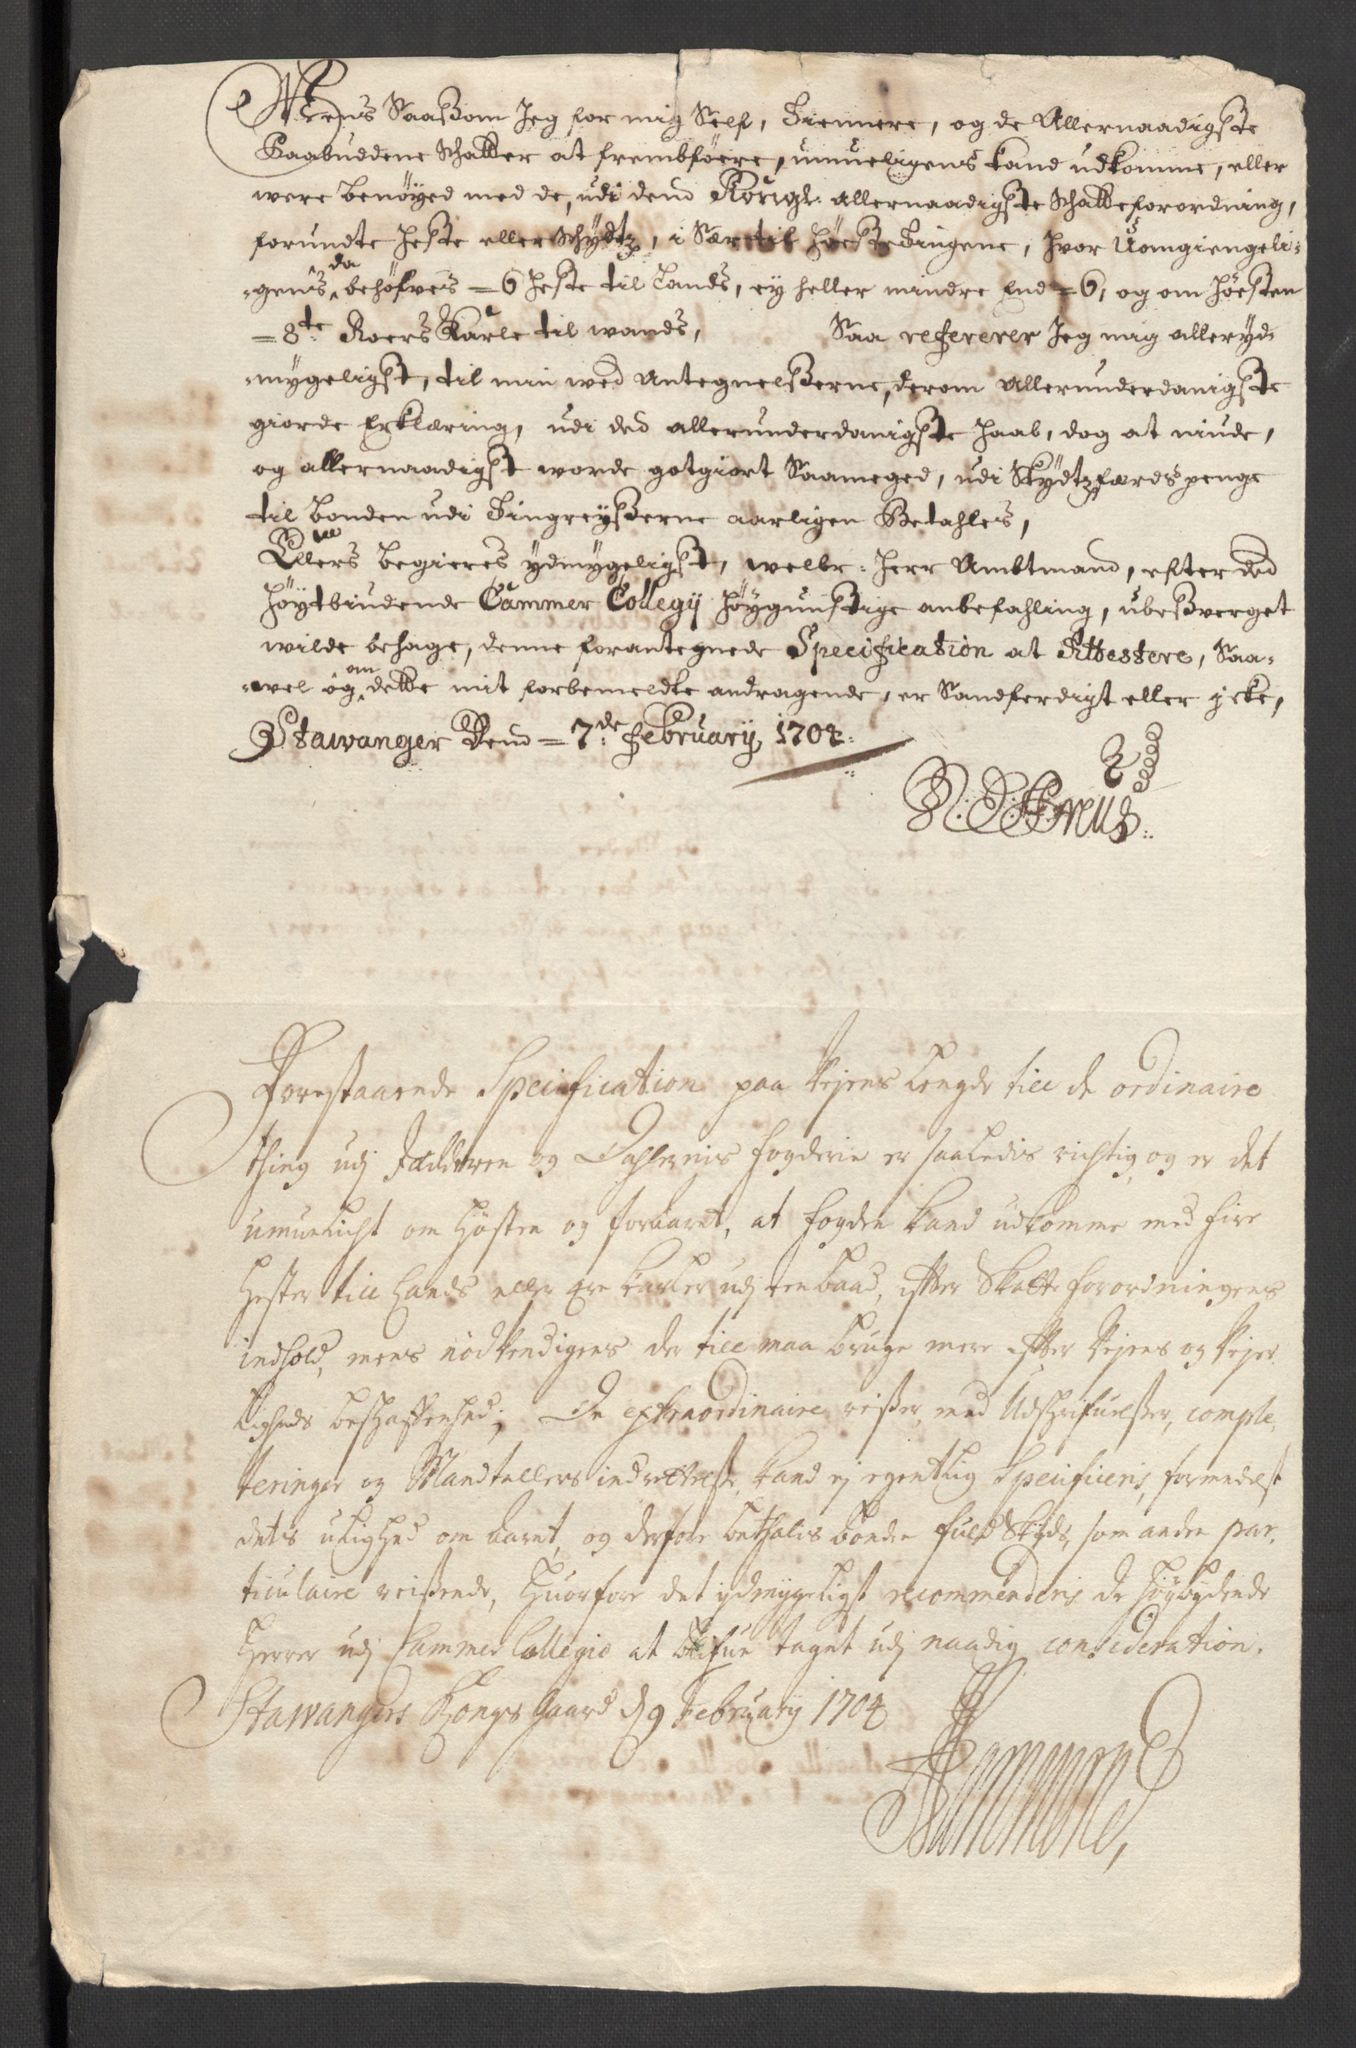 Mens Saasom Jeg for mig Self, Tiennere, og de Allernaadigste
Paabuddene Schatter at frembføere, umueligens kand udkomme, eller
were benøyed med de, udi dend Kongl: allernaadigste Schatteforordning,
forundte Heste eller Schydtz, i Sær til HøesteTingene, hvor Uomgiengeli-
-gens da behøfves = 6 Heste til Lands, ey heller mindre End = 6, og om Høesten
= 8te Roers Karle til wands, Saa refererer Jeg mig alleryd-
-mygeligst, til min wed Antegnelsserne, derom Allerunderdanigste
giorde Erklæring, udi ded allerunderdanigste Haab, dog at niude,
og allernaadigst worde gotgiort Saameged, udi Skydtzfærds penge
til bonden udi Tingreysserne aarligen Betahles,
Ellers begieres ydmygeligst, welbr: Herr Ambtmand, efter ded
Høytbiudende Cammer Collegij Høygunstige anbefahling, ubesverget
wilde behage, denne forantegnede Specification at Attestere, Saa-
-wel og om dette mit forbemeldte andragende, er Sandferdigt eller icke,
Stawanger Dend = 7de February 1704:
Forestaaende Specification paa Vejens Lengde till de ordinaire
thing udj Jædderen og Dahlernis fogderie er saaledis richtig, og er det
umueligt om Høsten og foraaret, at fogden kand udkomme med fire
Hester till Lands eller fire karler udj een baad, effter Skatte forordningens
indhold, mens nødvendigens der till maa bruge mere effter Vejens og Vejer-
ligheds beschaffenhed; De extraordinaire reisser med Udschrifvelsser, comple-
teringer og Mandtallers indrettelse, kand ej egentlig Specificeris, formedelst
dets ulighed om aaret, og derfore bethalis bonden fuld Skyds, som anden par-
ticulaire reisende, Huorfore det ydmygeligst recommenderis de høybydende
Herrer udj Cammer Collegio at blifve taget udj naadig consideration.
Stawangers Kongsgaard d 9 February 1704